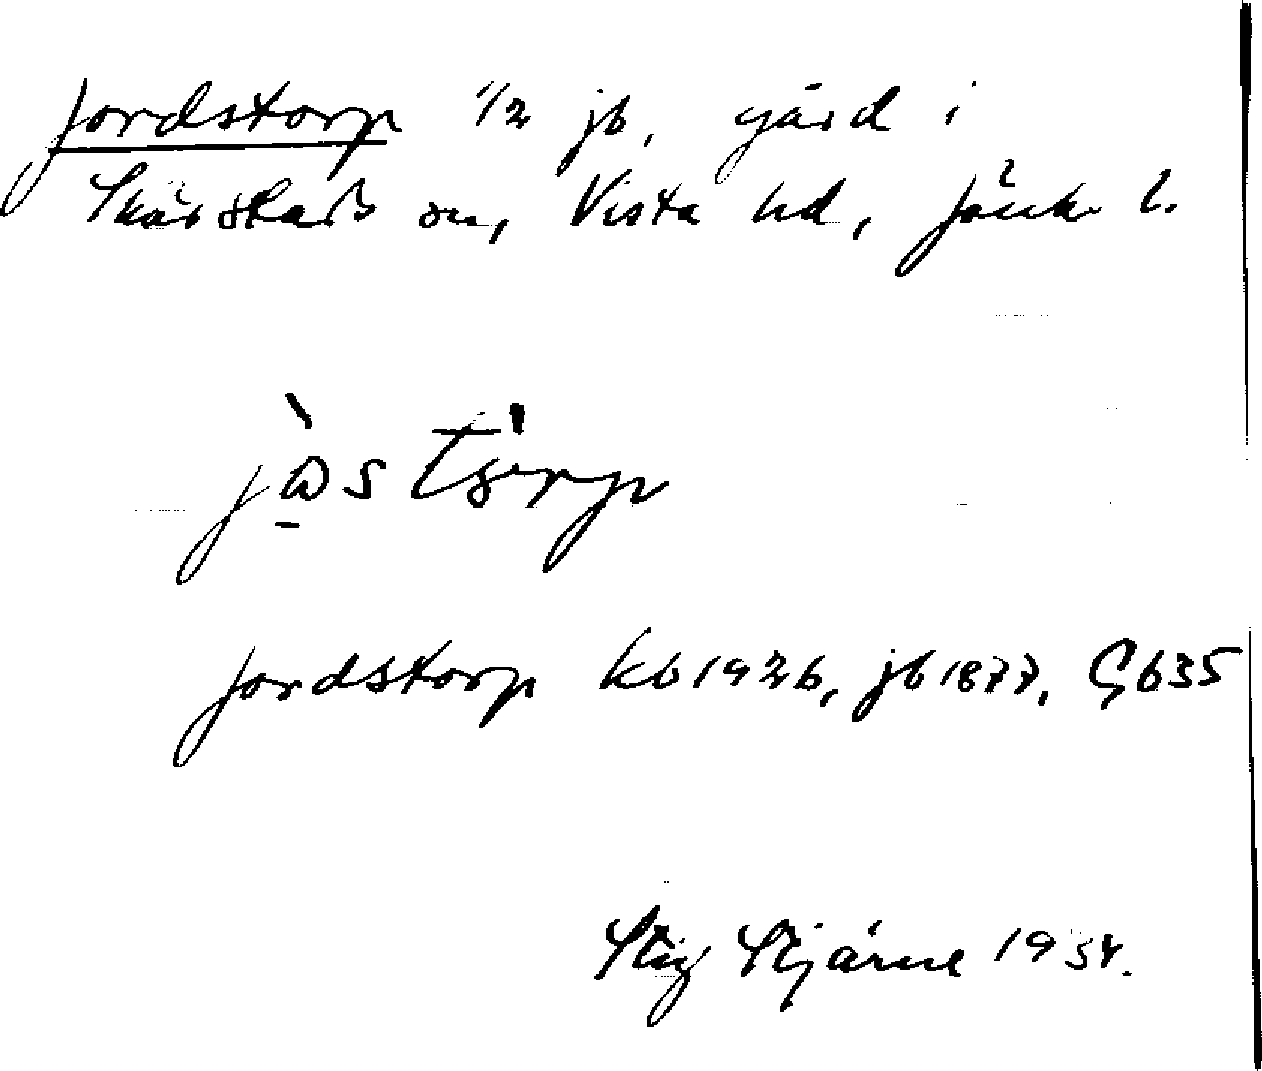 Jordstorp 1/2 jb, gård i
Skärstads sn, Vista hd, Jönk. l.
Jordstorp kb 1926, jb 1877, G 635
Stig Stjärne 1934.